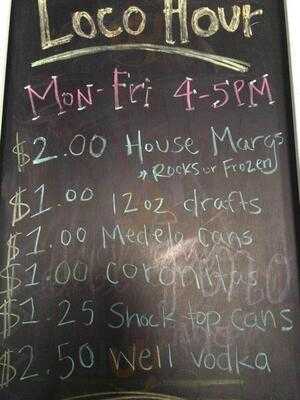 Loco Hour
Mon-Fri 4-5PM
$2.00 House Margs
Rocks or Frozen
$1.00 12oz drafts
$1.00 Medelo cans
$1.00 coronitas
$1.25 Shock top cans
$2.50 Well vodka